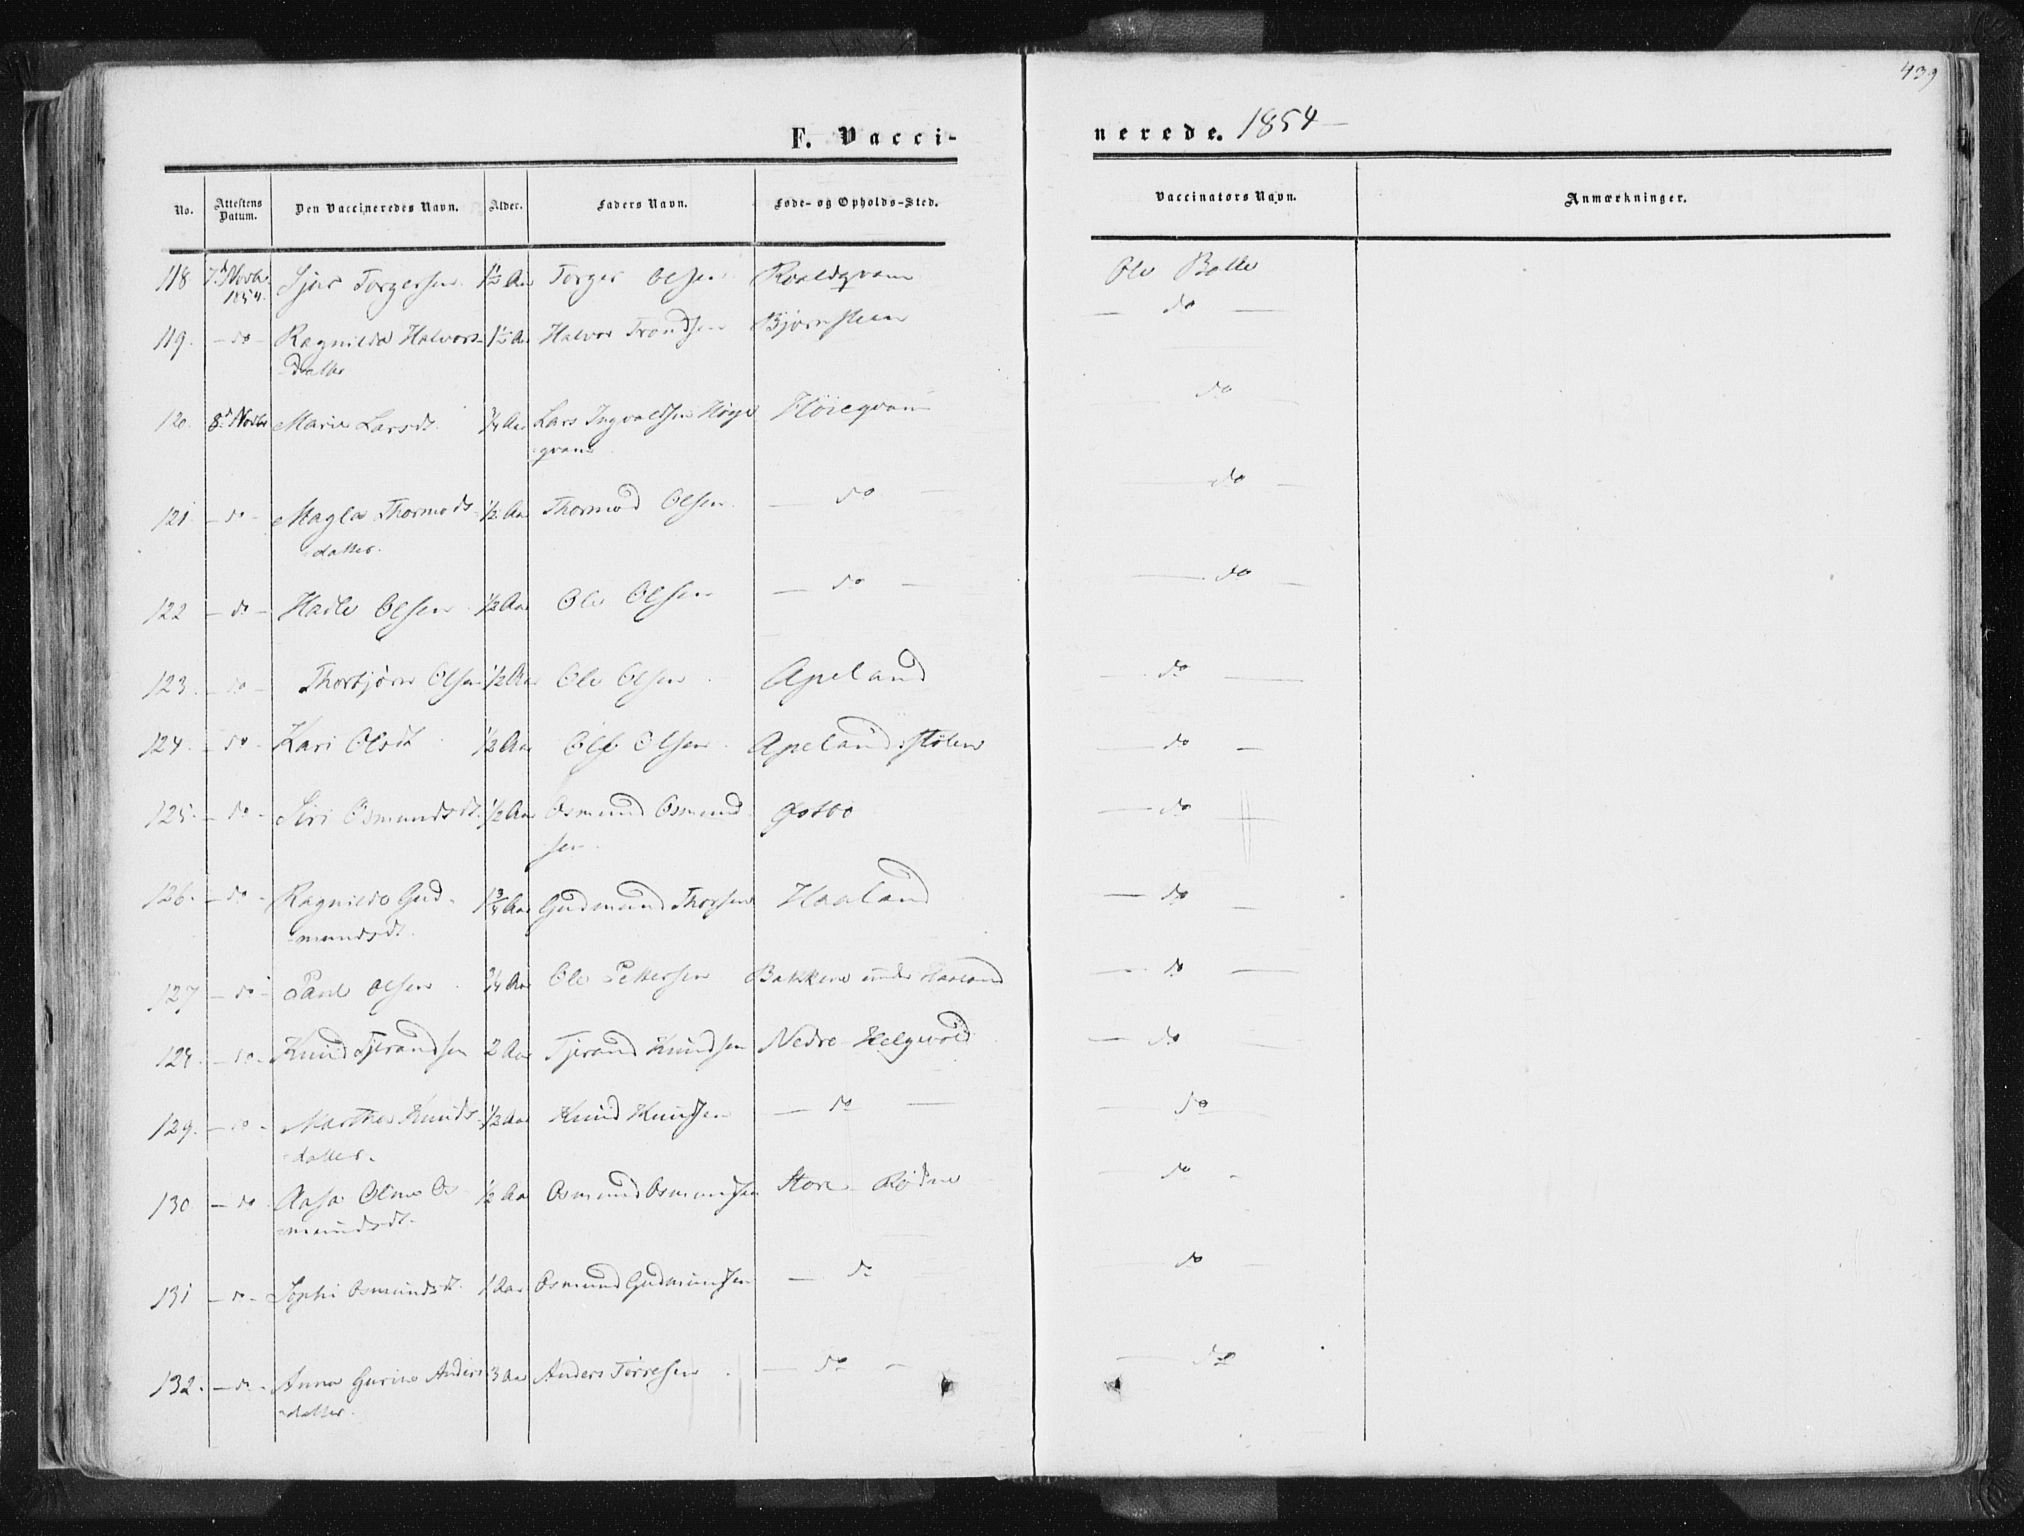 439
F. Vacci-
nerede. 1854 -
No. Attestens Datum. Den Vaccineredes Navn. Alder. Faders Navn. Føde- og Opholds-Sted. Vaccinators Navn. Anmærkninger.
118 7d Novbr 1854. Sjur Torgersen 1½ Aar Torger Olsen Roaldqvam Ole Bolle
119. - do - Ragnilda Halvors- 1½ Aar Halvor Trondsen Bjørnsteen - do -
-datter
120. 8d Novbr Marie Larsdt. ¾ Aar Lars Ingvaldsen Høye Høieqvam - do -
-qvam
121 - do - Magla Thormods- ½ Aar Thormod Olsen - do - - do -
-datter.
122 - do - Hadle Olsen ½ Aar Ole Olsen - do - - do -
123. - do - Thorbjørn Olsen ½ Aar Ole Olsen Apeland - do -
124. - do - Kari Olsdt ½ Aar Ole Olsen Apelandsstølen - do -
125. - do - Siri Osmundsdt. ½ Aar Osmund Osmund- Østbø - do -
sen.
126. - do - Ragnilda Gud- 1¾ Aar Gudmund Thorsen Haaland - do -
-mundsdt.
127 - do - Paul Olsen ¾ Aar Ole Pettersen Bakken under Haaland - do -
128. - do - Knud Tjerandsen 2 Aar Tjerand Knudsen Nedre Helgevold - do -
129. - do - Marthe Knuds- ½ Aar Knud Knudsen - do - - do -
-datter.
130. - do - Aasa Oline Os- ½ Aar Osmund Osmundsen Store Rødne - do -
-mundsdt.
131 - do - Sophi Osmundsdt. 1 Aar Osmund Gudmundsen - do - - do -
132. - do - Anna Gurine Anders- 3 Aar Anders Tørresen - do - - do
-datter.